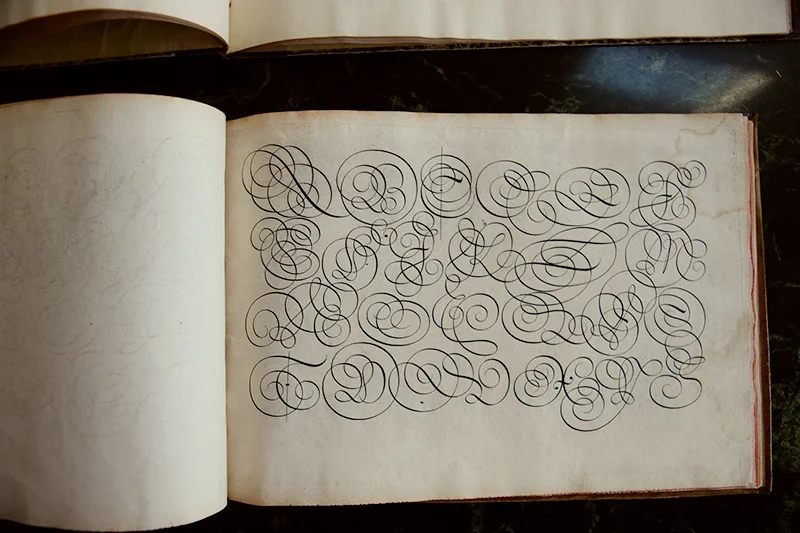 A B C D E F
G H I K L M
N O P Q R S
T V W X Y Z